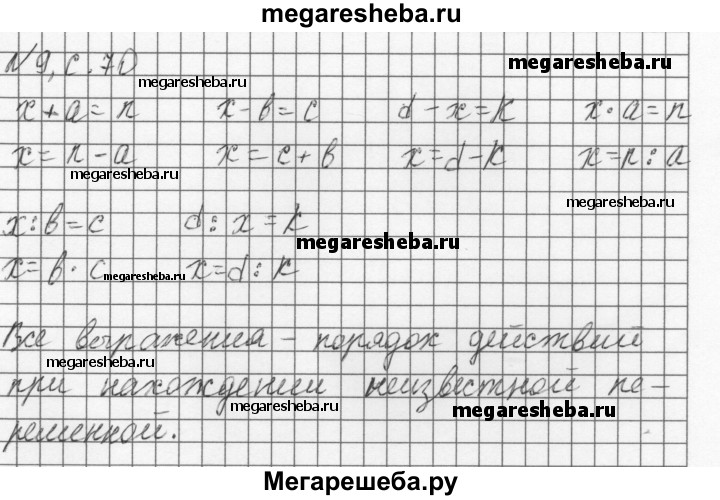 megaresheba.ru
N 9, с. 70
megaresheba.ru
megaresheba.ru
x + a = n x - b = c d - x = k x · a = n
x = n - a x = c + b x = d - k x = n : a
megaresheba.ru
megaresheba.ru
x : b = c d : x = k
megaresheba.ru
x = b · c x = d : k
megaresheba.ru
Все выражения - порядок действий
megaresheba.ru
при нахождении неизвестной пе-
megaresheba.ru
megaresheba.ru
ременной.
Мегарешеба.ру